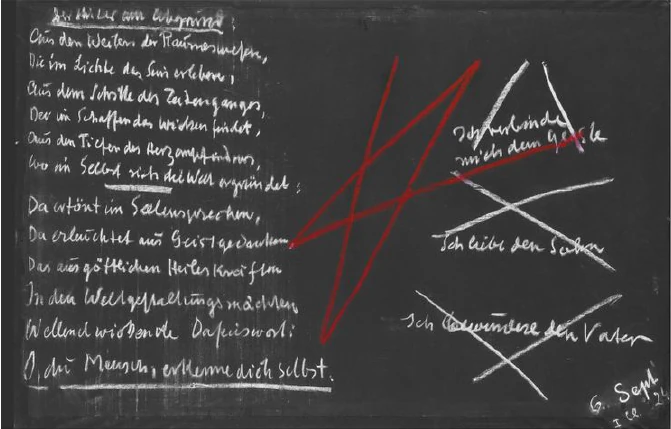 Der Hüter am Abgrund:
Aus den Weiten der Raumeswesen,
Die im Lichte das Sein erleben,
Aus dem Schritte des Zeitenganges,
Der im Schaffen das Wirken findet,
Aus den Tiefen des Herzempfindens,
Wo im Selbst sich die Welt ergründet:
Da ertönt im Seelensprechen,
Da erleuchtet aus Geistgedanken
Das aus göttlichen Heileskräften
In den Weltgestaltungsmächten
Wellend wirkende Daseinswort:
O, du Mensch, erkenne dich selbst.
Ich verbinde
mich dem Geiste
Ich liebe den Sohn
Ich bewundere den Vater
6. Sept
24